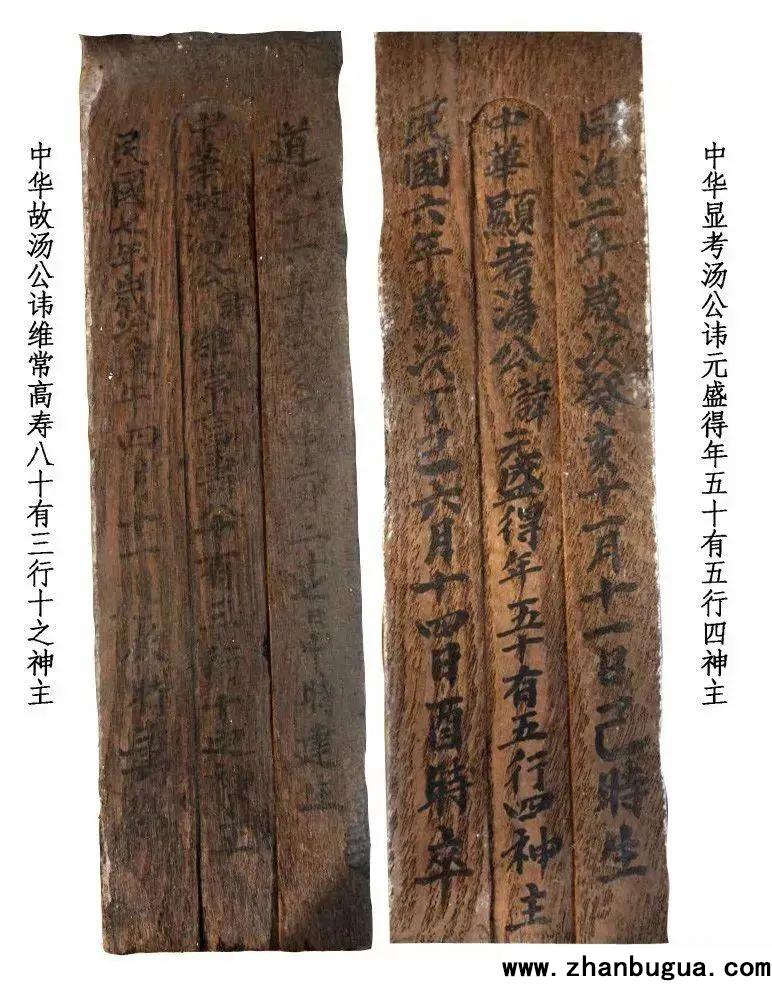 中华显考汤公讳元盛得年五十有五行四神主
同治二年歲次癸亥十一月十一日己時生
中華顯考湯公諱元盛得年五十有五行四神主
民國六年歲次丁巳六月十四日酉時卒
道光二十七日申時建生
中華故湯公諱維常高壽八十有三行十之神主
民國七年歲次年四月十一時
中华故汤公讳维常高寿八十有三行十之神主
www.zhanbugua.com